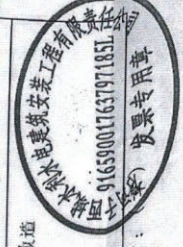 石河子西域水利水电建筑安装工程有限责任公司
91659001763797185L
发票专用章
道